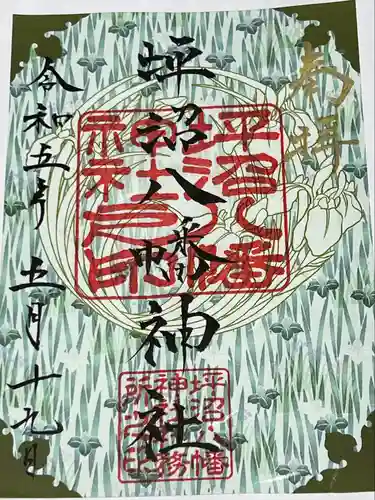 奉拝
坪沼八幡神社
令和五年五月十九日
坪沼八幡
神社社務
所之印